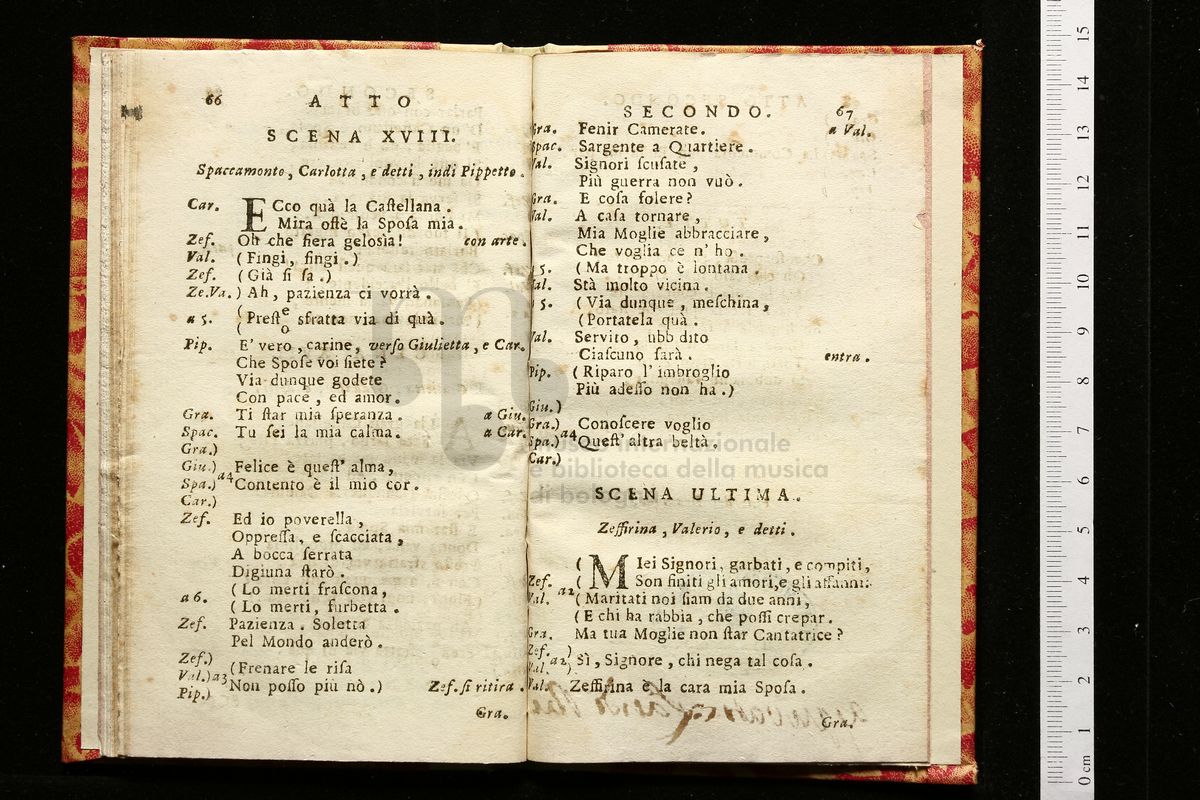 66
ATTO
SCENA XVIII.
Spaccamonto, Carlotta, e detti, indi Pippetto.
Car. ECco quà la Caſtellana.
Mira oſtè la Spoſa mia.
Zef. Oh che fiera gelosìa! con arte.
Val. (Fingi, fingi.)
Zef. (Già ſi ſa.)
Ze.Va.) Ah, pazienza ci vorrà.
a 5. (Preſt e/o sfratta via di quà.
Pip. E' vero, carine, verſo Giulietta, e Car.
Che Spoſe voi ſiete?
Via dunque godete
Con pace, ed amor.
Gra. Ti ſtar mia ſperanza. a Giu.
Spac. Tu ſei la mia calma. a Car.
Gra.)
Giu.) Felice è queſt' alma,
Spa.) a4 Contento è il mio cor.
Car.)
Zef. Ed io poverella,
Oppreſſa, e ſcacciata,
A bocca ſerrata
Digiuna ſtarò.
(Lo merti fraſcona,
a 6. (Lo merti, furbetta.
Zef. Pazienza. Soletta
Pel Mondo anderò.
Zef.)
Val.) a3 (Frenare le riſa
Pip.) Non poſſo più nò.) Zef. ſi ritira.
Gra.
SECONDO. 67
Gra. Fenir Camerate. a Val.
Spac. Sargente a Quartiere.
Val. Signori ſcuſate,
Più guerra non vuò.
Gra. E coſa folere?
Val. A caſa tornare,
Mia Moglie abbracciare,
Che voglia ce n' ho.
a 5. (Ma troppo è lontana.
Val. Stà molto vicina.
a 5. (Via dunque, meſchina,
(Portatela quà.
Val. Servito, ubb dito
Ciaſcuno ſarà. entra.
Pip. (Riparo l' imbroglio
Più adeſſo non ha.)
Giu.)
Gra.) Conoſcere voglio
Spa.) a4 Queſt' altra beltà.
Car.)
museo internazionale
e biblioteca della musica
di bologna
SCENA ULTIMA.
Zeffirina, Valerio, e detti.
( MIei Signori, garbati, e compiti,
Zef. ( Son finiti gli amori, e gli affanni:
Val. a2 (Maritati noi ſiam da due anni,
(E chi ha rabbia, che poſſi crepar.
Gra. Ma tua Moglie non ſtar Cantatrice?
Zef. )
Val a2) Sì, Signore, chi nega tal coſa.
Val. Zeffirina è la cara mia Spoſa.
Gra.
15
14
13
12
11
10
9
8
7
6
5
4
3
2
1
0 cm